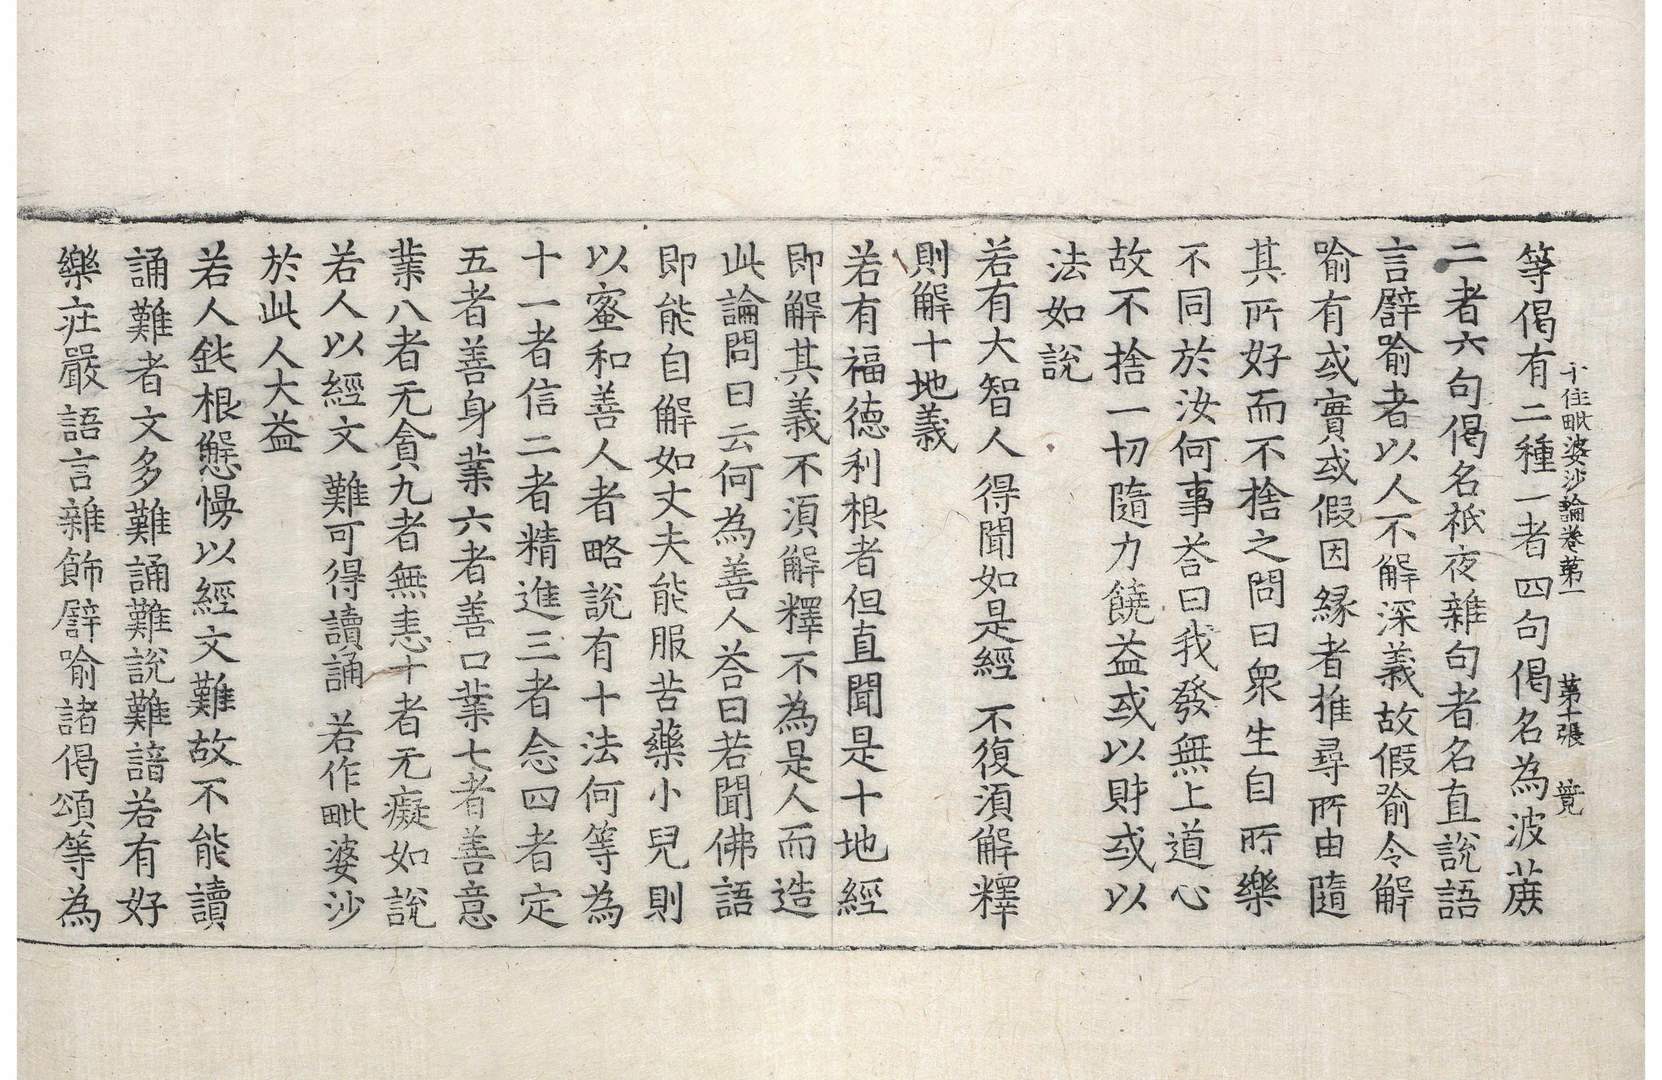 十住毗婆沙論卷第一　第十張　竟
等偈有二種一者四句偈名為波蔗
二者六句偈名祇夜雜句者名直說語
言譬喻者以人不解深義故假喻令解
喻有或實或假因緣者推尋所由隨
其所好而不捨之問曰眾生自所樂
不同於汝何事荅曰我發無上道心
故不捨一切隨力饒益或以財或以
法如說
若有大智人　得聞如是經　不復湏解釋
則解十地義
若有福德利根者但直聞是十地經
即解其義不湏解釋不為是人而造
此論問曰云何為善人荅曰若聞佛語
即能自解如丈夫能服苦藥小兒則
以蜜和善人者略說有十法何等為
十一者信二者精進三者念四者定
五者善身業六者善口業七者善意
業八者无貪九者無恚十者无癡如說
若人以經文　難可得讀誦　若作毗婆沙
於此人大益
若人鈍根懈慢以經文難故不能讀
誦難者文多難誦難說難諳若有好
樂莊嚴語言雜飾譬喻諸偈頌等為